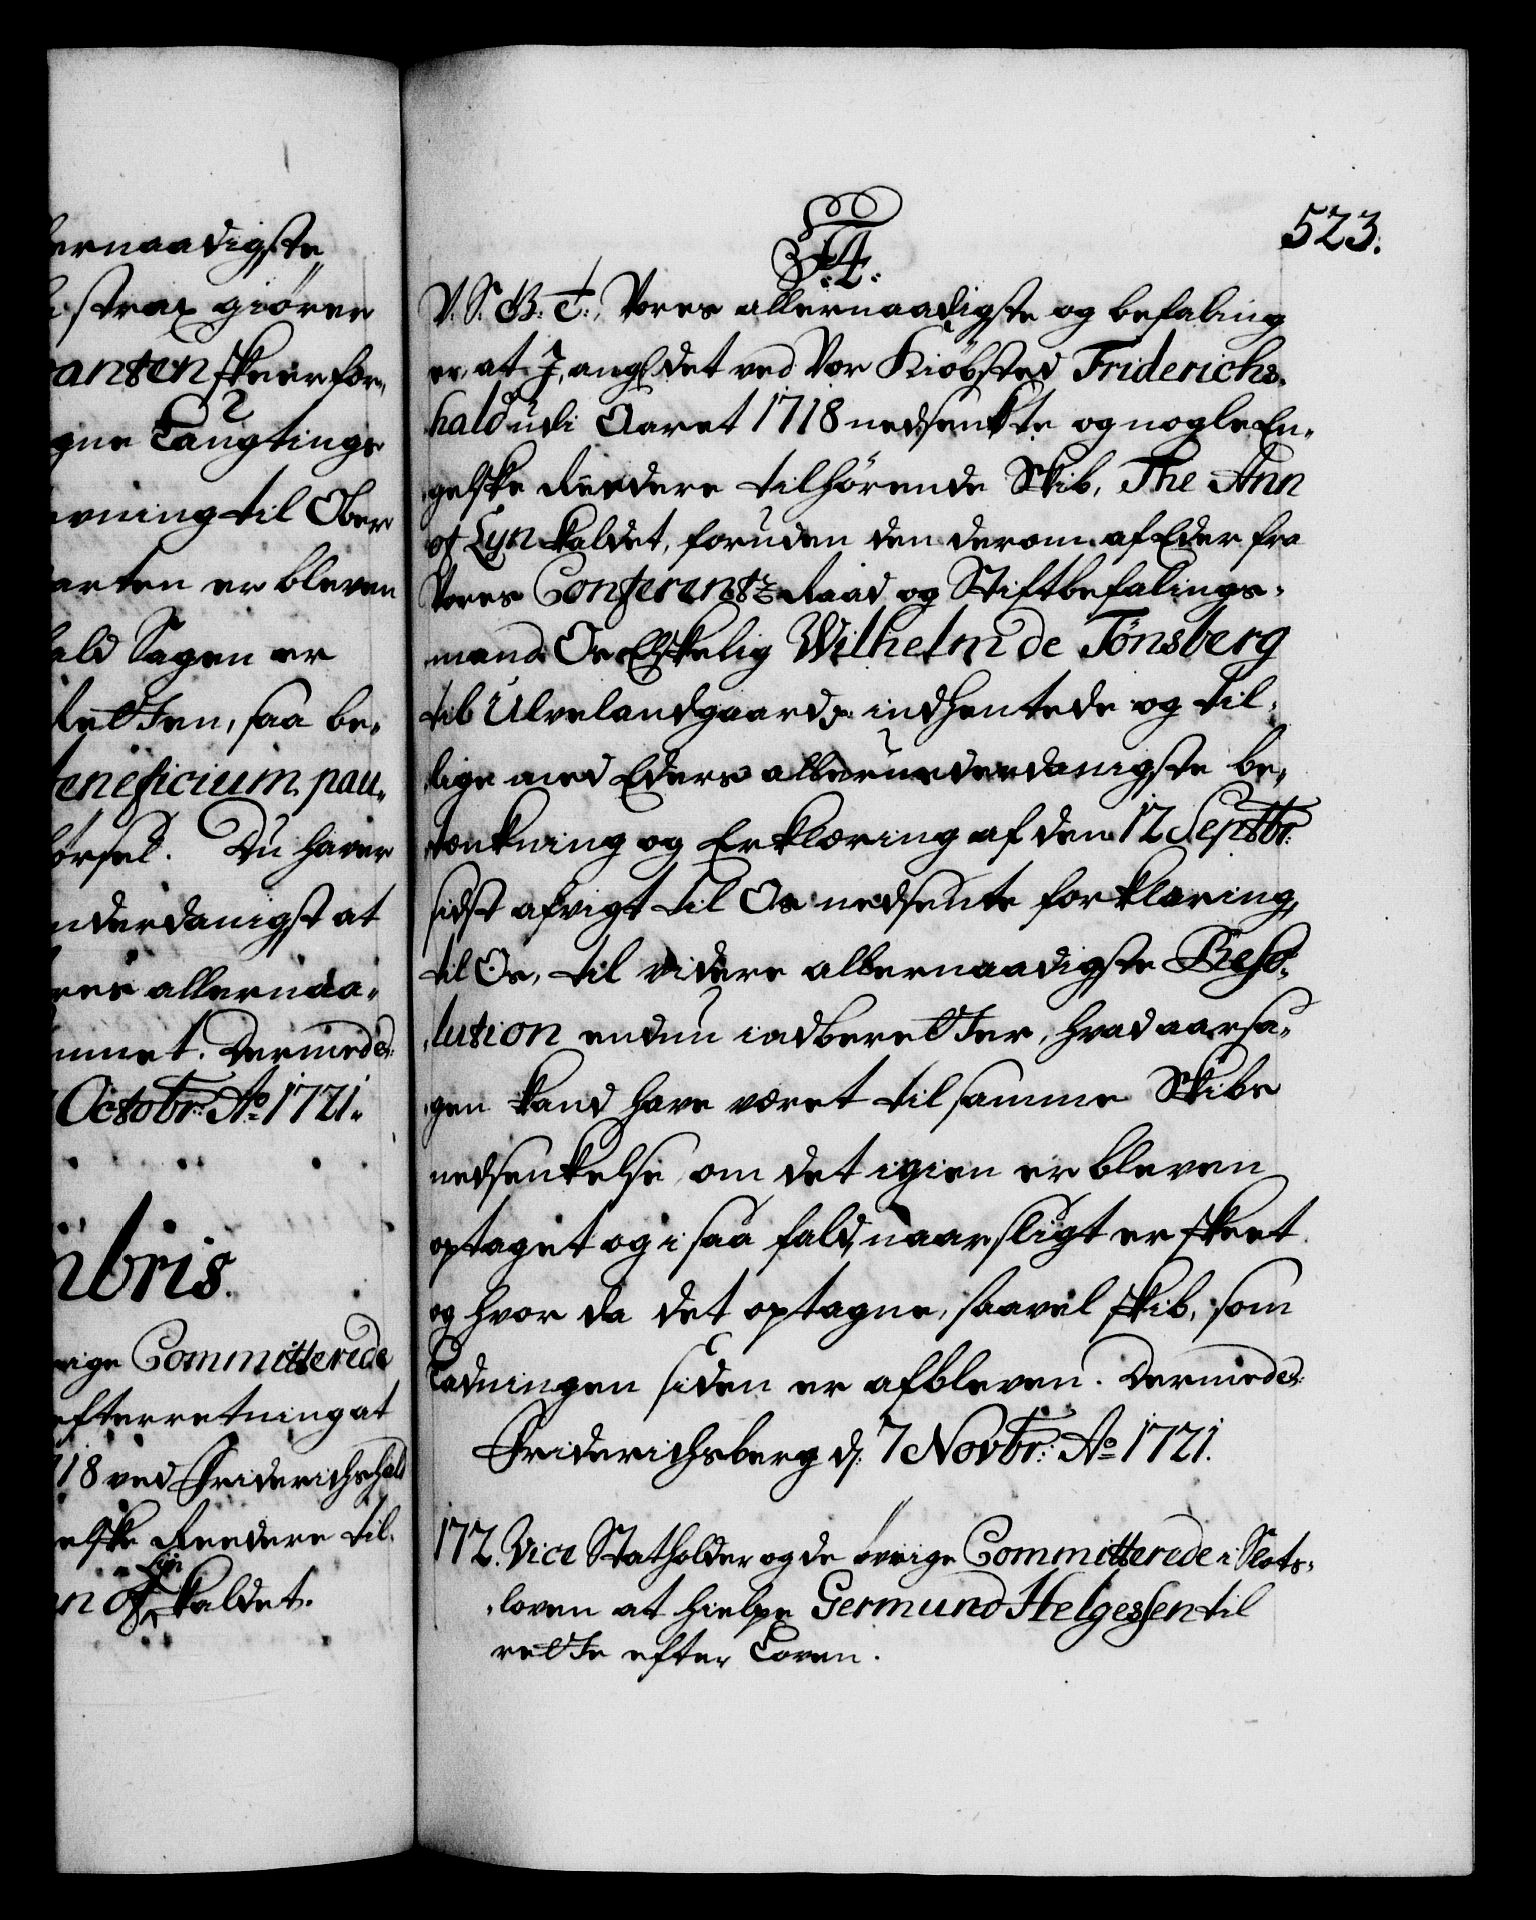 ernaadigste
strax giøre
anten skeer for,
gne Laugtings
vning til Ober
arten er bleven
ald Sagen er
Retten, saa be,
eneficium pau,
ørsel. Du haver
nderdanigst at
res allernaa,
mmet. Dermed etc:
Octobr: Ao 1721.
mbris.
vrige Committerede
efterretning at
718 ved Friderichshald
elske Reedere til,
n of Lyn kaldet.
523.
F4.
V. S. G. B. T., Vores allernaadigste og befaling
er, at I, ang: det ved Vor Kiøbsted Friderichs,
hald udi Aaret 1718 nedsenkte og nogle En,
gelske Reedere tilhørende Skib, The Ann
of Lyn kaldet, foruden den derom af Eder fra
Vores Conferentz Raad og Stiftbefalings,
mand Os Elskelig Wilhelm de Tönsberg
til Ulvelandgaard indhentede og til,
lige med Eders allerunderdanigste be,
tænkning og Erklæring af den 12 Septbr:
sidst afvigt til Os nedsente forklaring,
til Os, til videre allernaadigste Reso,
lution endnu indberetter, hvad aarsa,
gen kand have været til samme Skibs
nedsenkelse, om det igien er bleven
optaget og i saa fald, naar sligt er skeet
og hvor da det optagne, saavel skib, som
Ladningen siden er afbleven. Dermed etc:
Friderichsberg d: 7 Novbr: Ao 1721.
172. Vice Statholder og de øvrige Committerede i Slots,
loven at hielpe Germund Helgessen til
rette efter Loven.